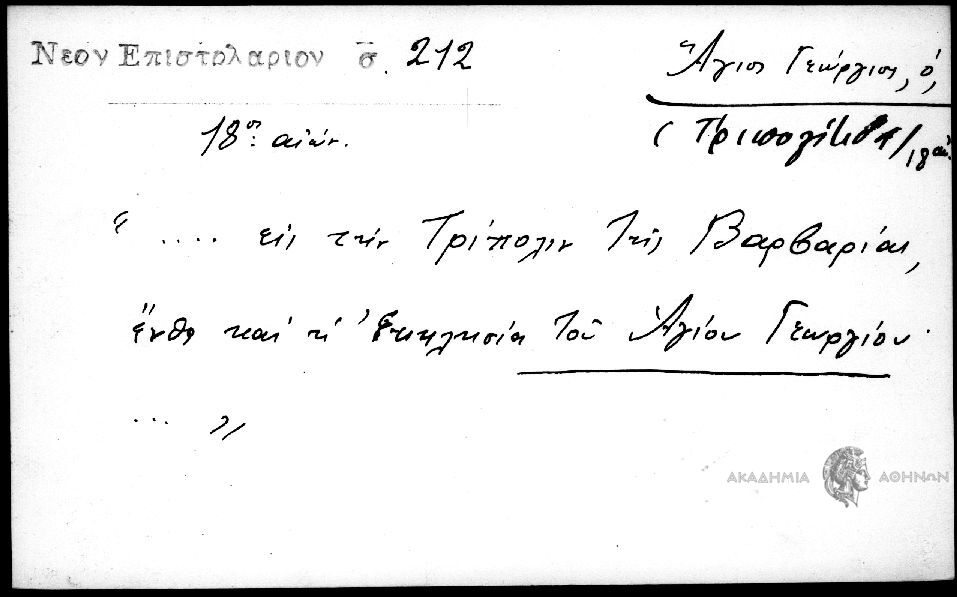 Νεον Επιστολαριον σ. 212
Ἅγιος Γεώργιος, ὁ,
18ος: αἰών.
18 αἰ.
“ .... εἰς τὴν Τρίπολιν τῆς Βαρβαρίας,
ἔνθα καὶ ἡ Ἐκκλησία τοῦ Ἁγίου Γεωργίου
... „
ΑΚΑΔΗΜΙΑ ΑΘΗΝΩΝ